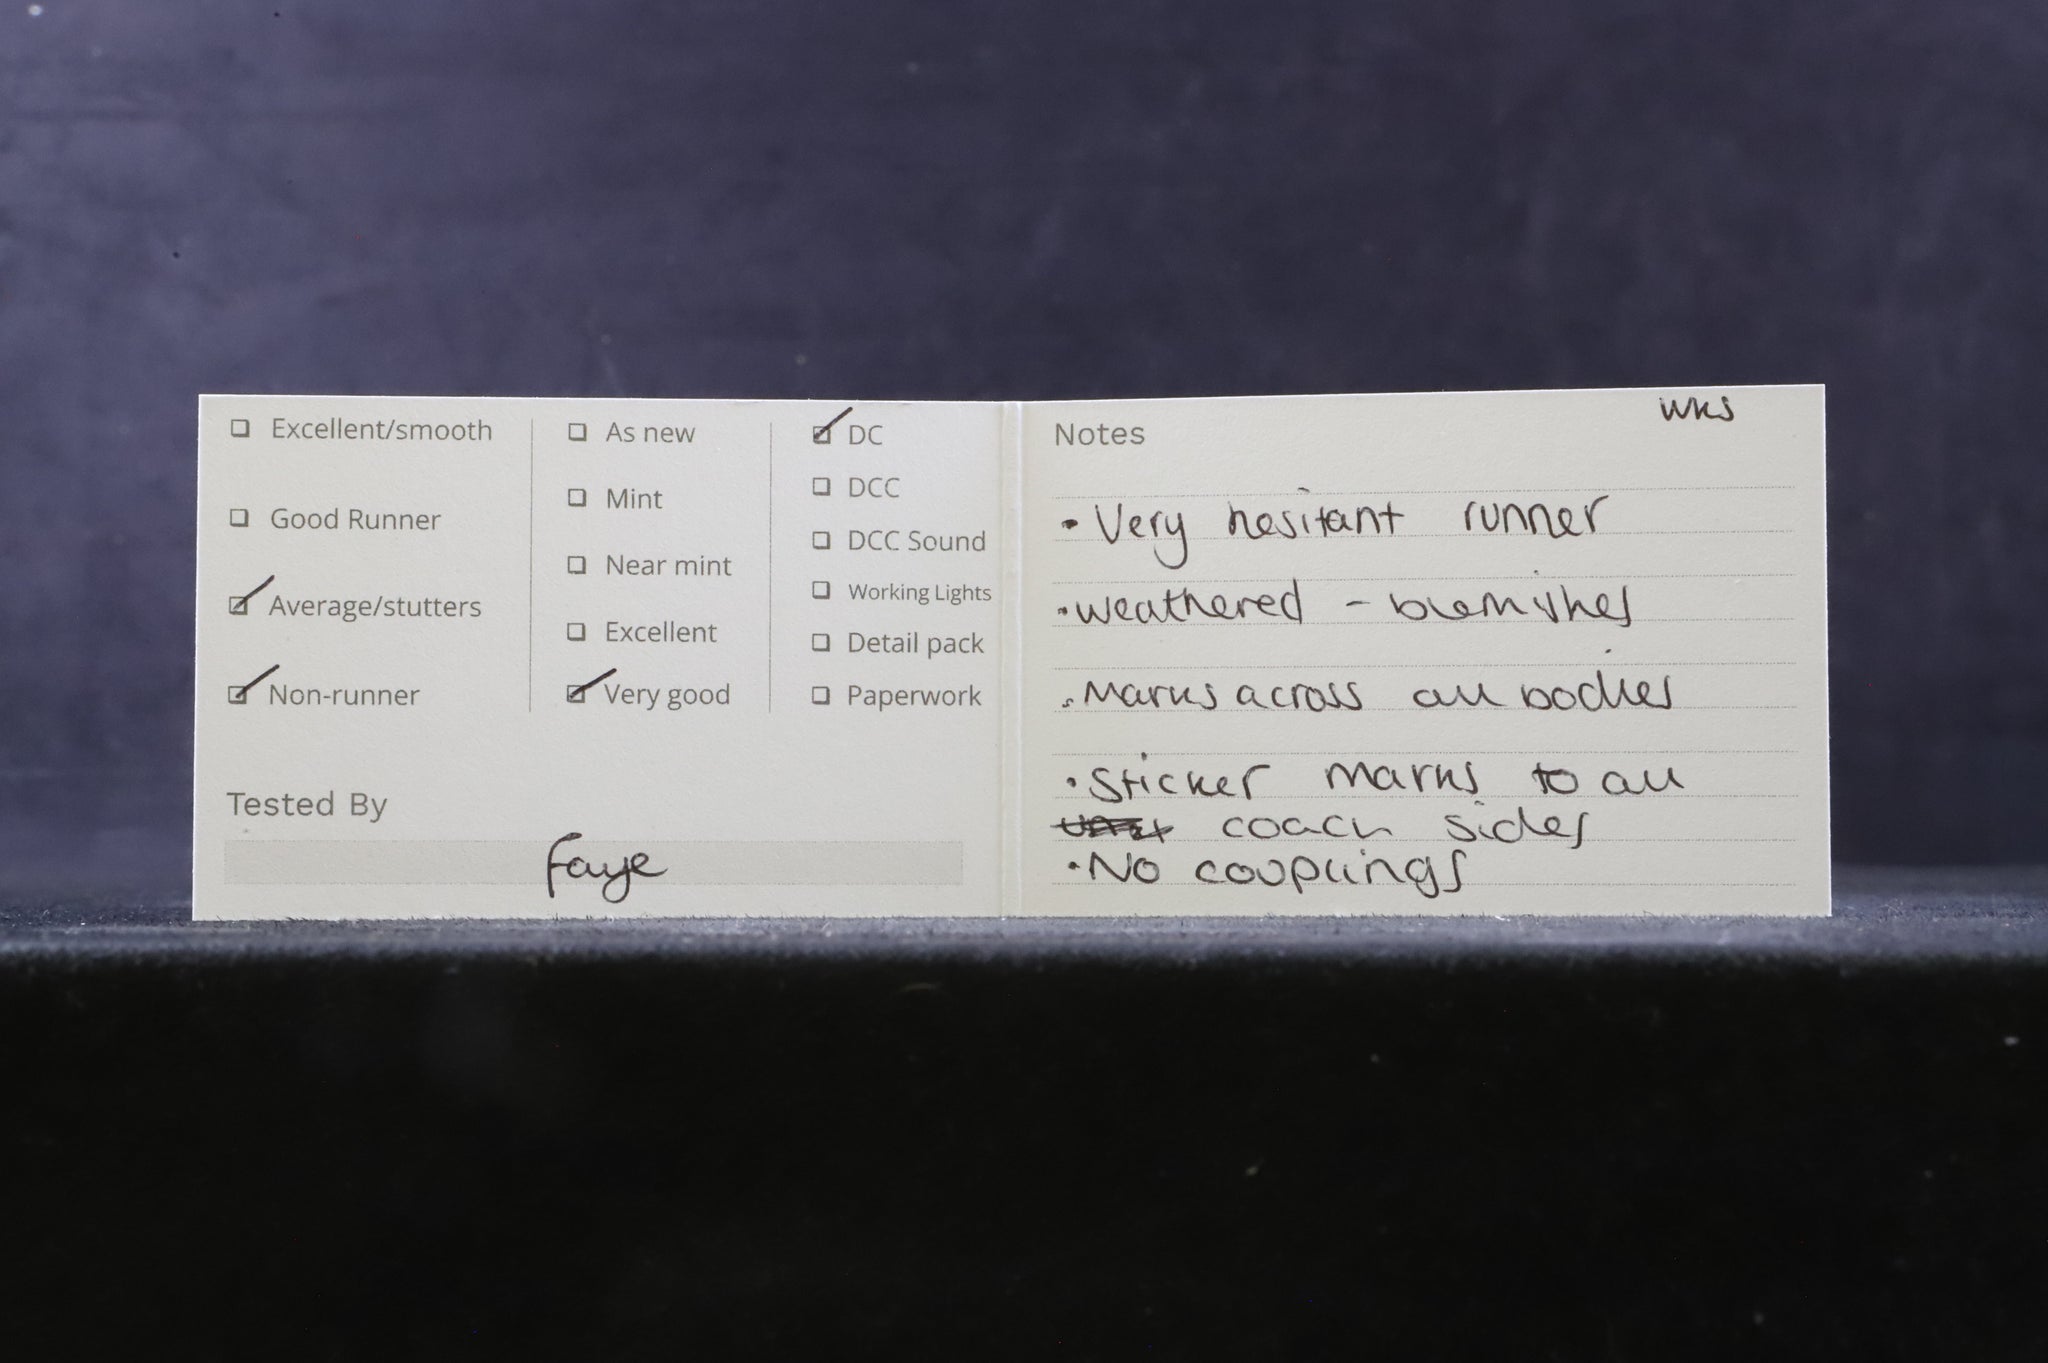 Excellent/smooth
Good Runner
Average/stutters
Non-runner
As new
Mint
Near mint
Excellent
Very good
DC
DCC
DCC Sound
Working Lights
Detail pack
Paperwork
Tested By
Faye
WKS
Notes
• Very hesitant runner
• Weathered - blemishes
• Marks across all bodies
• Sticker marks to all
coach sides
• No couplings